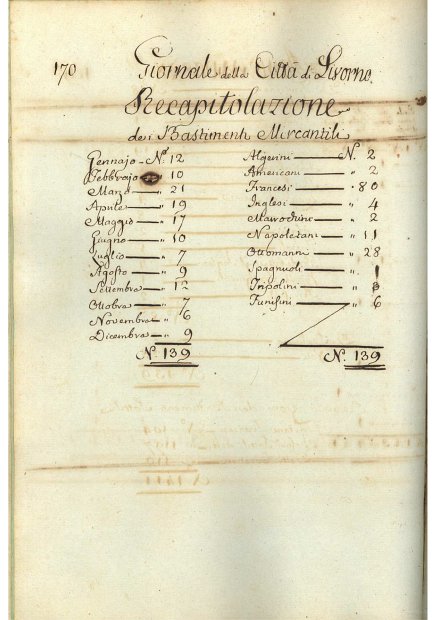 170
Giornale della Città di Livorno.
Recapitolazione
dei Bastimenti Mercantili
Gennajo - N.° 12
Febbrajo " 10
Marzo — " 21
Aprile — " 19
Maggio — " 17
Giugno — " 10
Luglio — " 7
Agosto — " 9
Settembre — " 12
Ottobre — " 7
Novembre — " 6
Dicembre — 9
N.° 139
Algerini — N. 2
Americani — " 2
Francesi — " 80
Inglesi — " 4
— " 2
Napoletani — " 11
Ottomanni — " 28
Spagnuoli — " 1
Tripolini — " 3
Tunisini — " 6
N.° 139